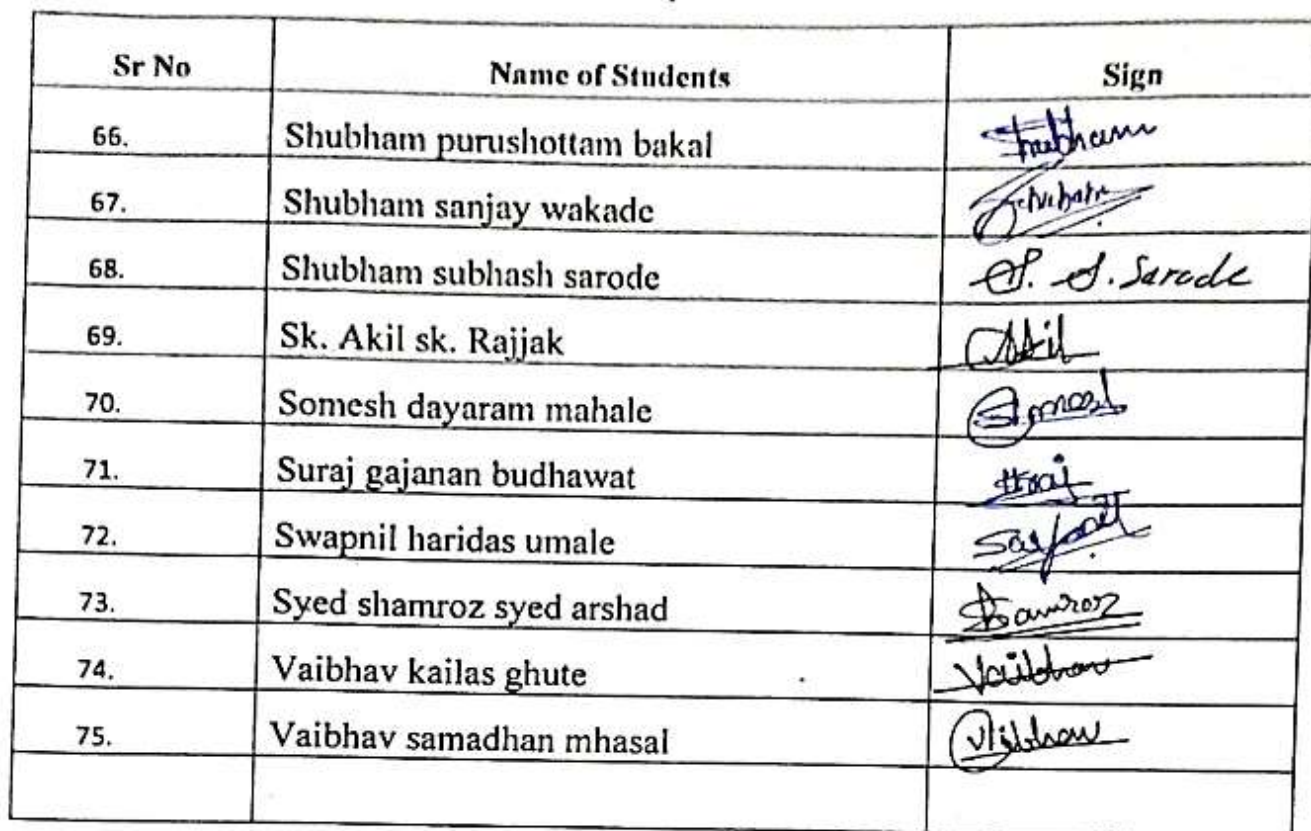 Sr No Name of Students Sign
66. Shubham purushottam bakal Shubham
67. Shubham sanjay wakade
68. Shubham subhash sarode S. S. Sarode
69. Sk. Akil sk. Rajjak Akil
70. Somesh dayaram mahale
71. Suraj gajanan budhawat
72. Swapnil haridas umale
73. Syed shamroz syed arshad Shamroz
74. Vaibhav kailas ghute Vaibhav
75. Vaibhav samadhan mhasal